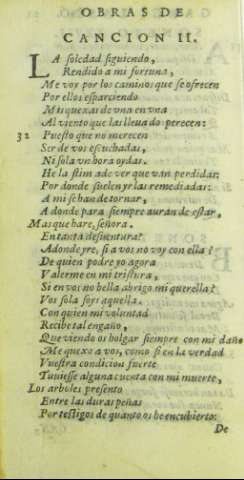 OBRAS DE
CANCION II.
LA soledad siguiendo,
Rendido a mi fortuna,
Me voy por los caminos que se ofrecen
Por ellos esparciendo
Mis quexas de vna en vna
Al viento que las lleua do perecen:
32 Puesto que no merecen
Ser de vos escuchadas,
Ni sola vn hora oydas.
He lastima de ver que van perdidas:
Por donde suelen yr las remediadas:
A mi se han de tornar,
A donde para siempre auran de estar,
Mas que hare, señora.
En tanta desuentura?
Adonde yre, si a vos no voy con ella?
De quien podre yo agora
Valerme en mi tristura,
Si en vos no halla abrigo mi querella?
Vos sola soys aquella.
Con quien mi voluntad
Recibe tal engaño,
Que viendo os holgar siempre con mi daño
Me quexo a vos, como si en la verdad
Vuestra condicion fuerte
Tuuiesse alguna cuenta con mi muerte,
Los arboles presento
Entre las duras peñas
Por testigos de quanto os he encubierto:
De